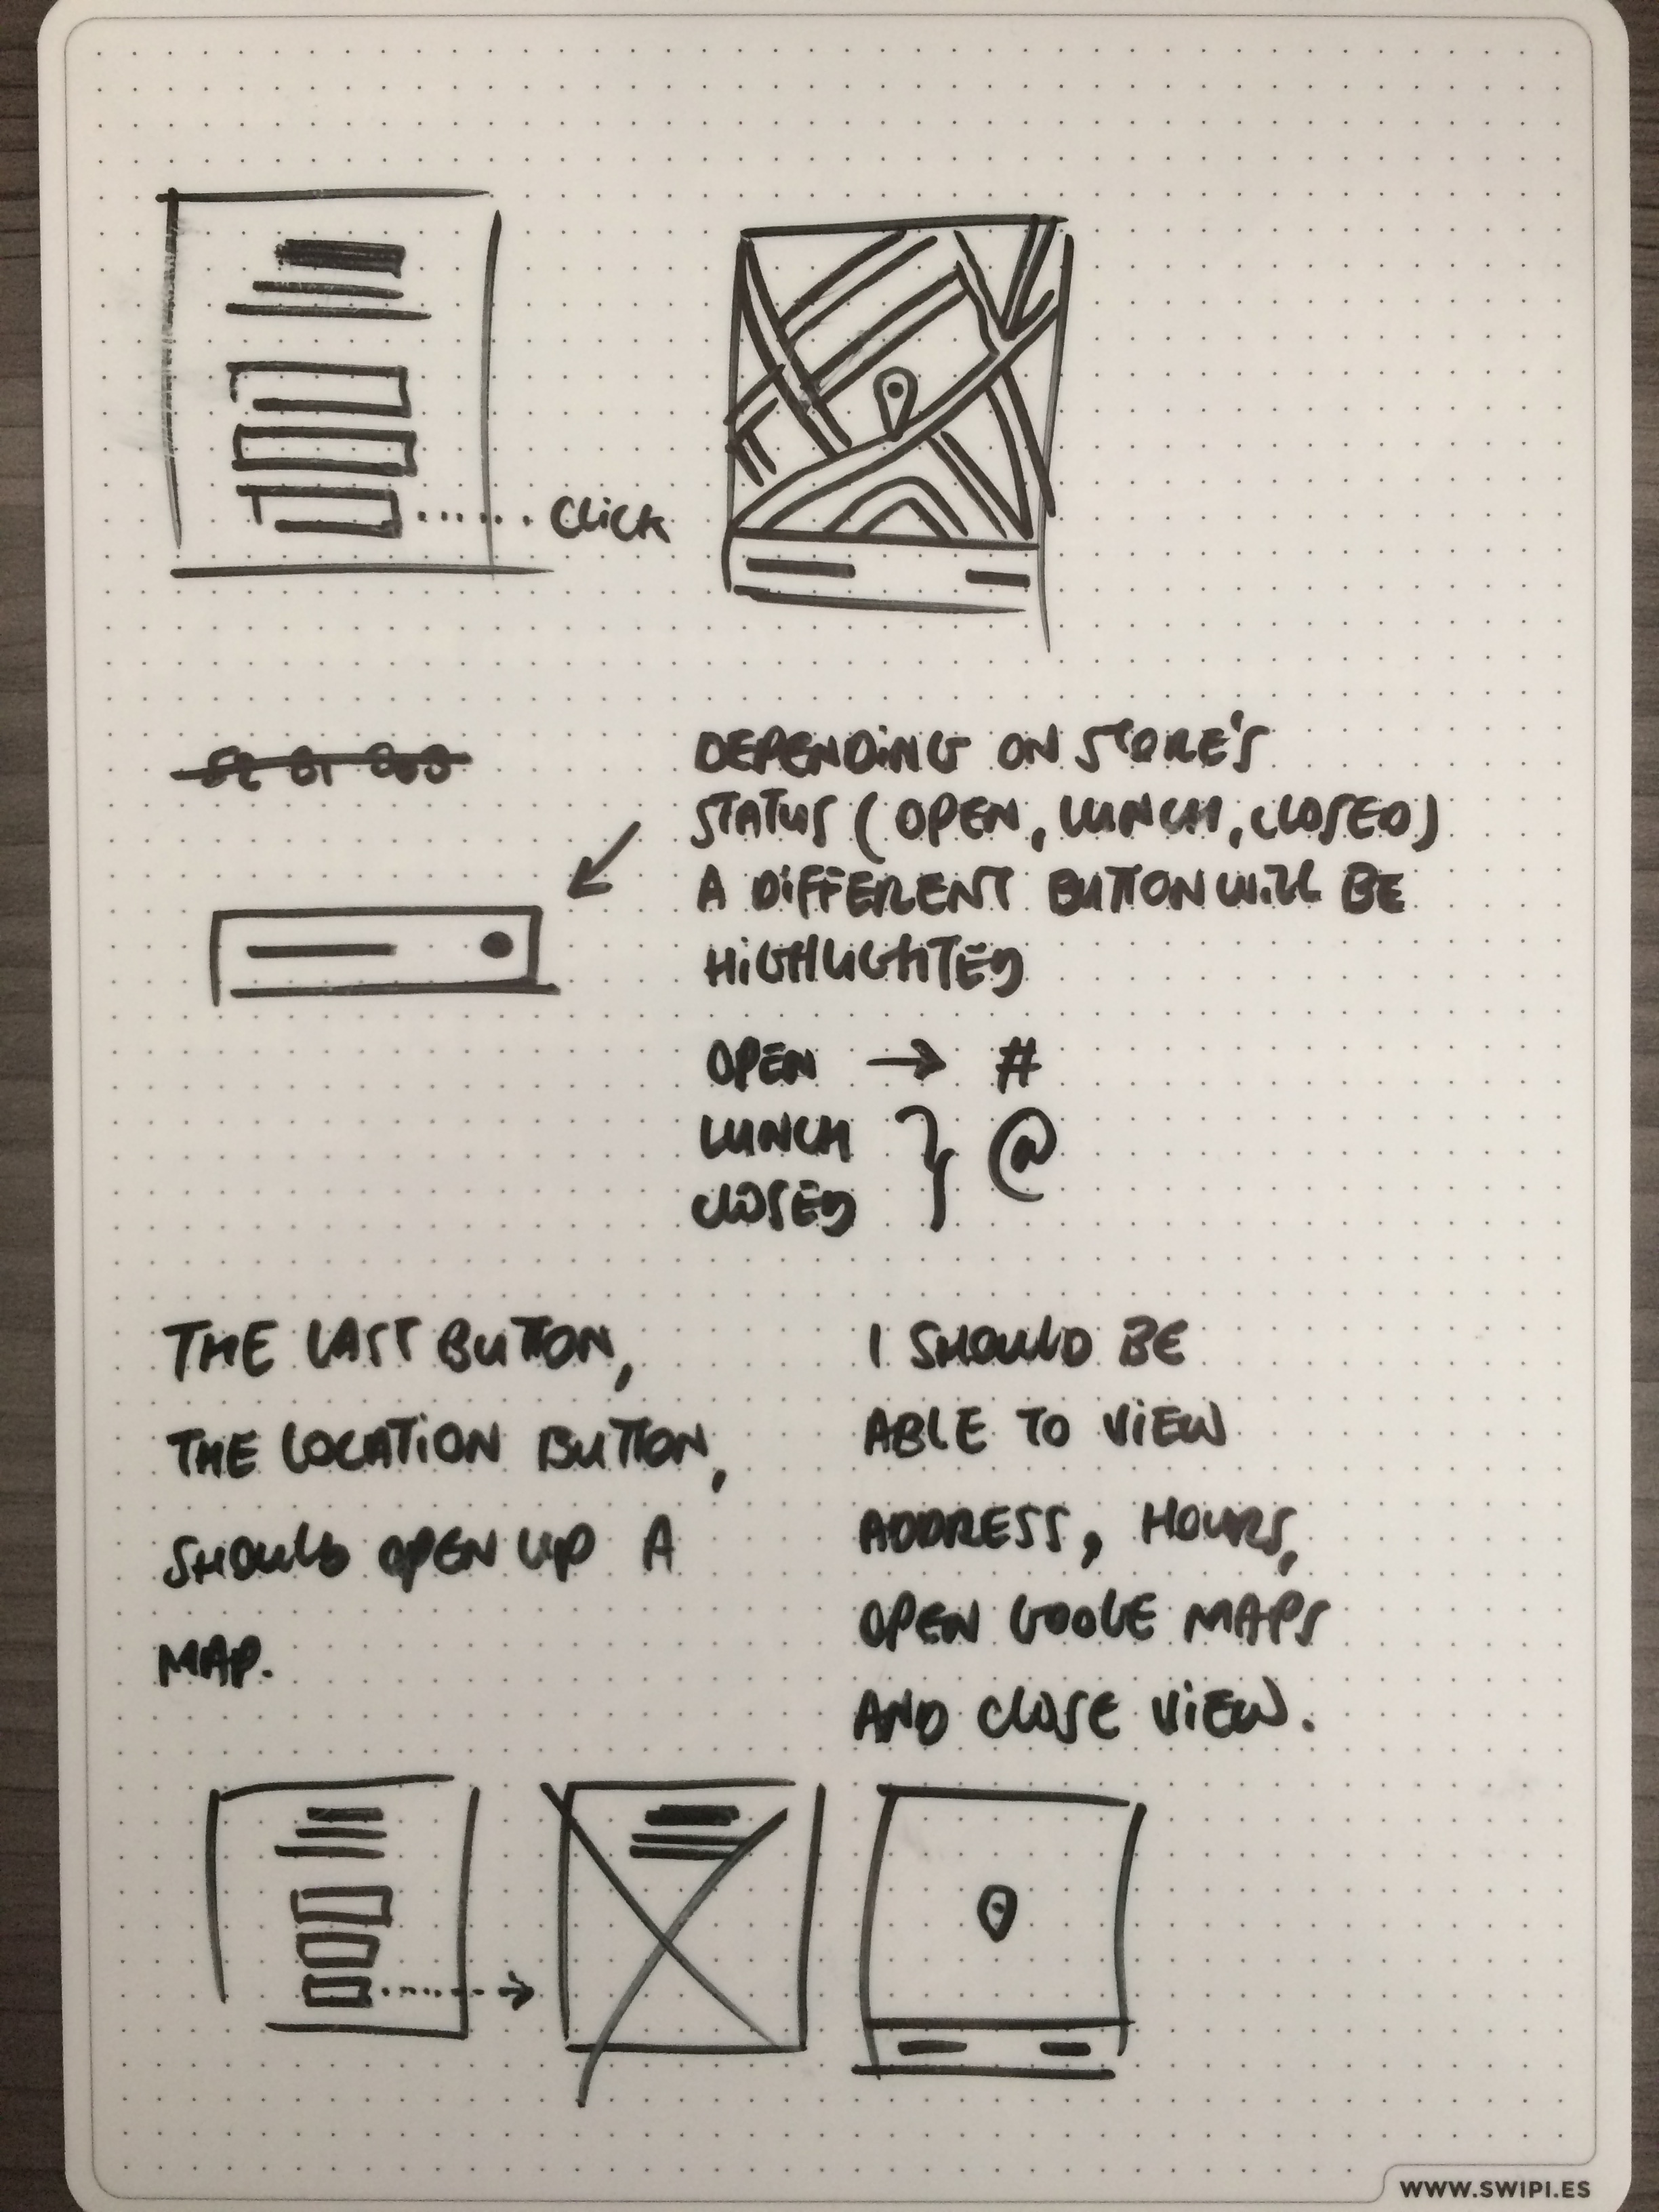 CLICK
DEPENDING ON STORE'S
STATUS (OPEN, LUNCH, CLOSED)
A DIFFERENT BUTTON WILL BE
HIGHLIGHTED
OPEN → #
LUNCH } @
CLOSED
THE LAST BUTTON,
THE LOCATION BUTTON,
SHOULD OPEN UP A
MAP.
I SHOULD BE
ABLE TO VIEW
ADDRESS, HOURS,
OPEN GOOGLE MAPS
AND CLOSE VIEW.
WWW.SWIPI.ES